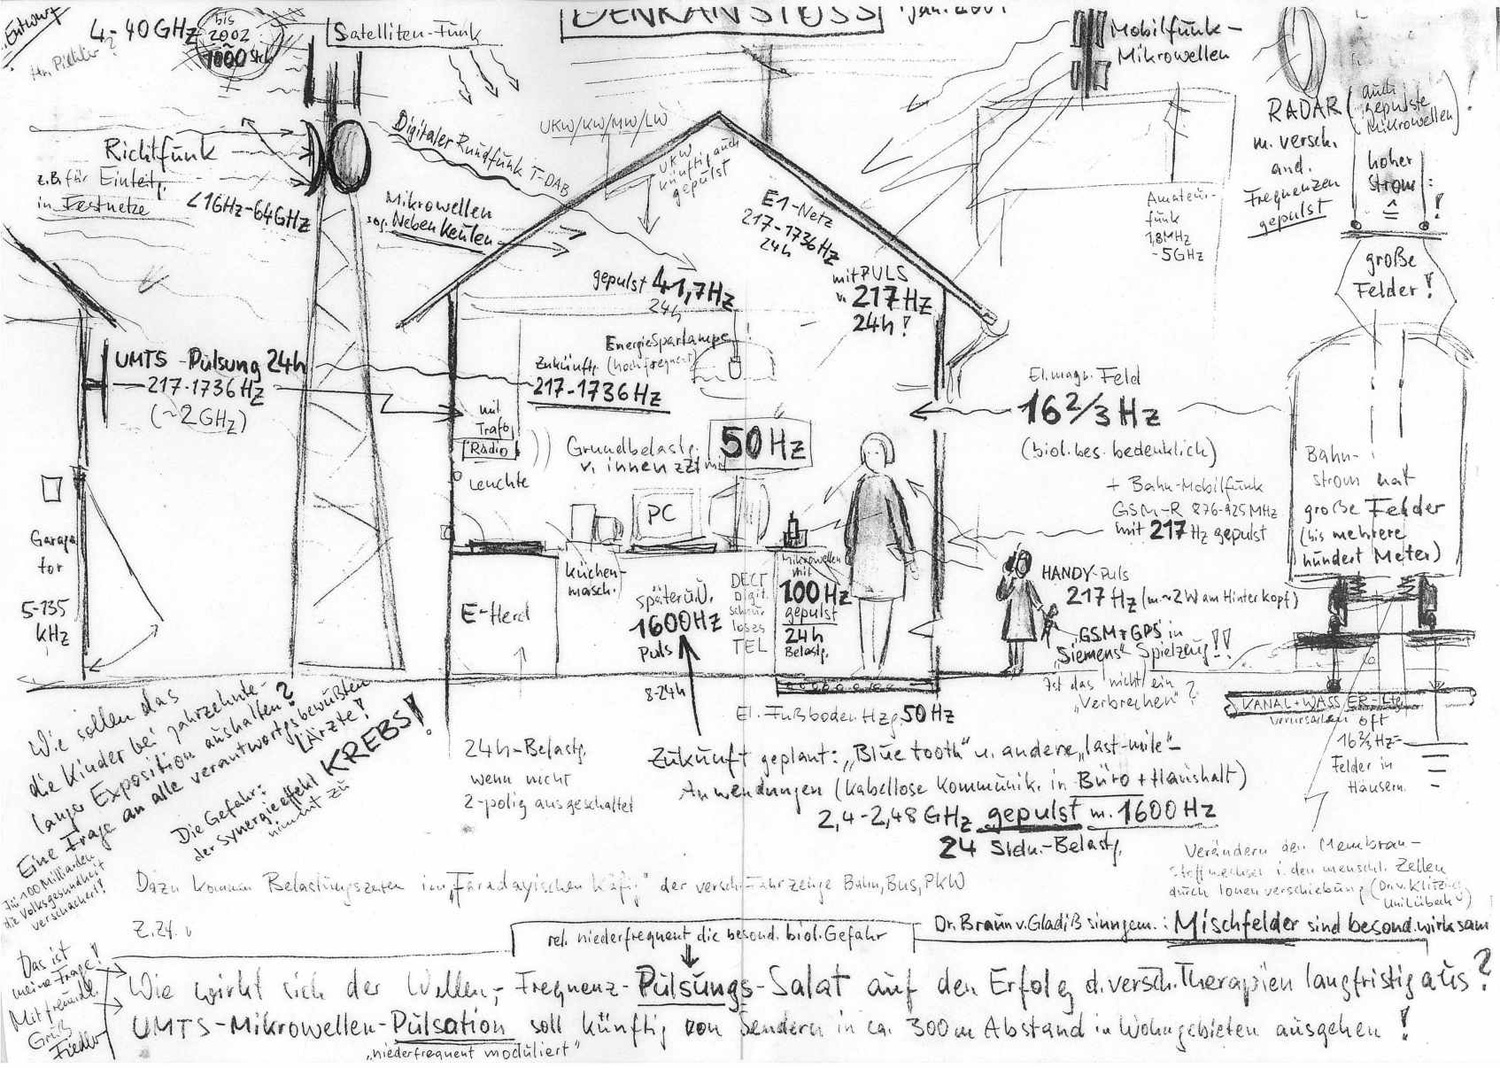 Entwurf
4-40GHz
bis
2002
1000 Stck
Satelliten-Funk
DENKANSTOSS
Jan. 2001
Mobilfunk-
Mikrowellen
RADAR
(auch
gepulste
Mikrowellen)
m. versch.
and.
Frequenzen
gepulst
hoher
Strom
≙
!
große
Felder!
Richtfunk
z.B. für Einteilg.
in Festnetze
<1GHz-64GHz
Digitaler Rundfunk T-DAB
Mikrowellen
sog. Nebenkeulen
UKW/KW/MW/LW
UKW
künftig auch
gepulst
E1-Netz
217-1736Hz
24h
mit PULS
v. 217Hz
24h!
Amateur-
funk
1,8MHz
-5GHz
gepulst 41,7Hz
24h
Energiesparlampe
(hochfrequent)
Zukünft.
217-1736Hz
UMTS-Pulsung 24h
217-1736Hz
(~2GHz)
mit
Trafo
Radio
Leuchte
Grundbelastg.
v. innen zzt mit
50Hz
PC
El.magn. Feld
16 2/3 Hz
(biol. bes. bedenklich)
+ Bahn-Mobilfunk
GSM-R 876-925MHz
mit 217Hz gepulst
Bahn-
strom hat
große Felder
(bis mehrere
hundert Meter)
Garage
tor
5-135
kHz
E-Herd
Küchen-
masch.
später u.U.
1600Hz
Puls
8-24h
DECT
Digit.
schnur
loses
TEL
Mikrowellen
mit
100Hz
gepulst
24h
Belastg.
HANDY-Puls
217Hz (m. ~2W am Hinterkopf)
GSM+GPS in
"Siemens" Spielzeug!!
Ist das "nicht ein
"Verbrechen"?
El. Fußboden Hzg. 50Hz
KANAL+WASS
verursachen oft
16 2/3 Hz-
Felder in
Häusern
24h-Belastg.
wenn nicht
2-polig ausgeschaltet
Zukunft geplant: "Bluetooth" u. andere "last-mile"-
Anwendungen (kabellose Kommunik. in Büro + Haushalt)
2,4-2,48GHz gepulst m. 1600Hz
24 Stdn.-Belastg.
Wie sollen das
die Kinder bei jahrzehnte-
langer Exposition aushalten?
Eine Frage an alle verantwortgsbewußten
Ärzte!
Die Gefahr:
der Synergieeffekt KREBS!
nimmt zu
für 100 Milliarden
die Volksgesundheit
verschachert!
Verändern den Membran-
stoffwechsel i. den menschl. Zellen
durch Ionenverschiebung (Dr. v. Klitzing
Uni Lübeck)
Dazu kommen Belastungszeiten im "Faradayischen Käfig" der versch. Fahrzeuge Bahn, Bus, PKW
rel. niederfrequent die besond. biol. Gefahr
Dr. Braun v. Gladiß sinngem.: Mischfelder sind besond. wirksam
Das ist
meine Frage!
Mit freundl.
Gruß
Wie wirkt sich der Wellen-, Frequenz-Pulsungs-Salat auf den Erfolg d. versch. Therapien langfristig aus?
UMTS-Mikrowellen-Pulsation soll künftig von Sendern in ca. 300m Abstand in Wohngebieten ausgehen!
"niederfrequent moduliert"